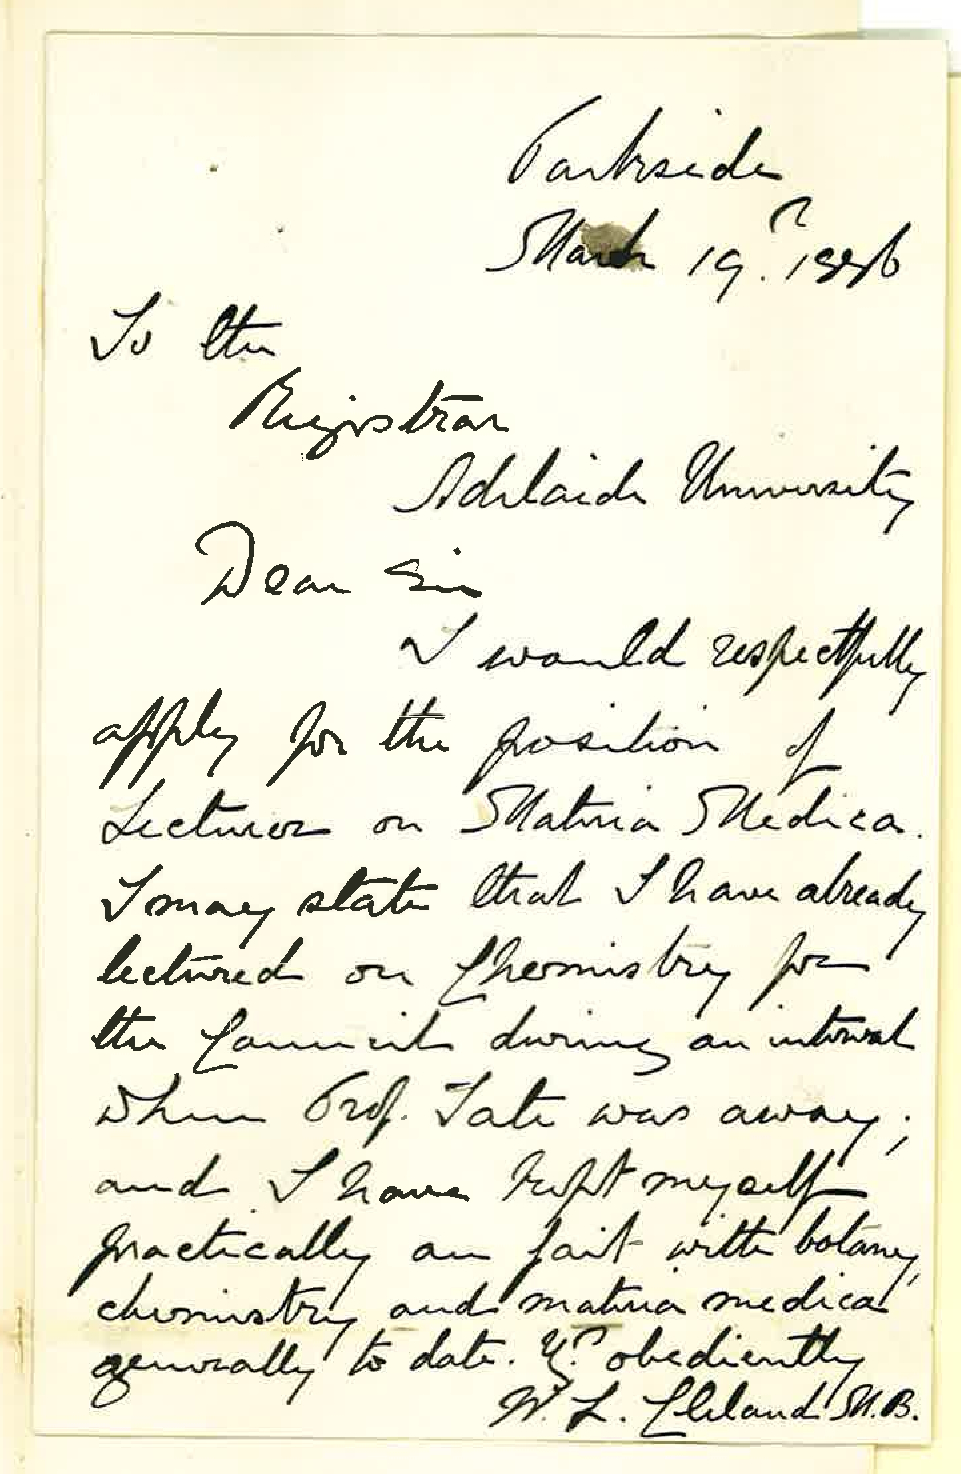 Parkside
March 19th 1886
To the
Registrar
Adelaide University
Dear Sir
I would respectfully
apply for the position of
Lecturer on Materia Medica.
I may state that I have already
lectured on Chemistry for
the Council during an interval
when Prof. Tate was away;
and I have kept myself
practically au fait with botany,
chemistry and materia medica
generally to date. Yrs obediently
W. L. Cleland M.B.